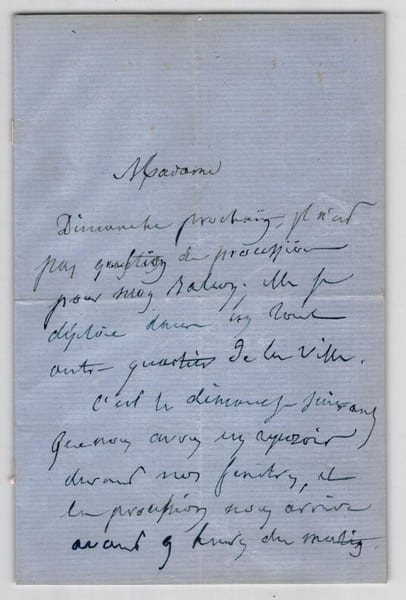 Madame
Dimanche prochain, il n'est
pas question de procession
pour nos Elle se
déploie dans un tout
autre quartier de la Ville.
c'est le dimanche suivant
que nous avons un reposoir
devant nos fenêtres, et
la procession nous arrive
avant 9 heures du matin.